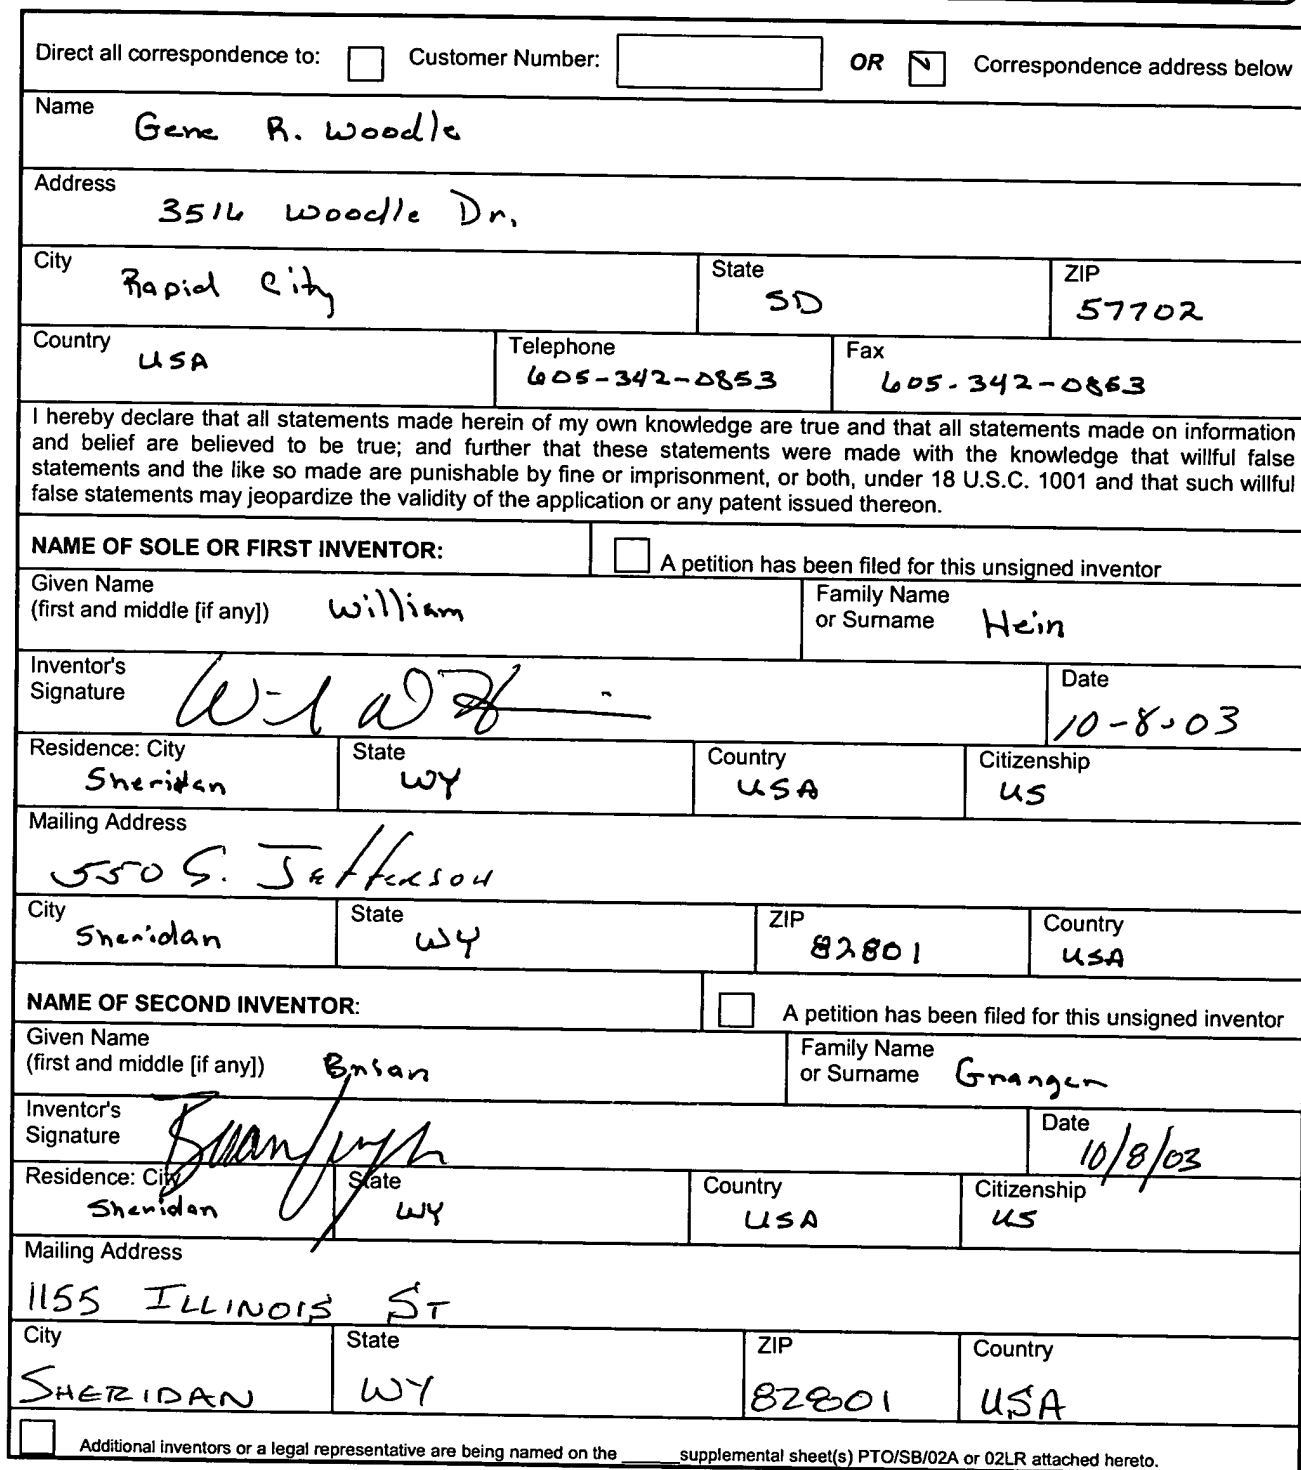 Direct all correspondence to: Customer Number: OR Correspondence address below
Name Gene R. Woodle
Address 3516 Woodle Dr.
City Rapid City State SD ZIP 57702
Country USA Telephone 605-342-0853 Fax 605-342-0853
I hereby declare that all statements made herein of my own knowledge are true and that all statements made on information
and belief are believed to be true; and further that these statements were made with the knowledge that willful false
statements and the like so made are punishable by fine or imprisonment, or both, under 18 U.S.C. 1001 and that such willful
false statements may jeopardize the validity of the application or any patent issued thereon.
NAME OF SOLE OR FIRST INVENTOR: A petition has been filed for this unsigned inventor
Given Name
(first and middle [if any]) William
Family Name
or Surname Hein
Inventor's
Signature
Date
10-8-03
Residence: City Sheridan State WY Country USA Citizenship US
Mailing Address
550 S. Jefferson
City Sheridan State WY ZIP 82801 Country USA
NAME OF SECOND INVENTOR: A petition has been filed for this unsigned inventor
Given Name
(first and middle [if any]) Brian
Family Name
or Surname Granger
Inventor's
Signature
Date
10/8/03
Residence: City Sheridan State WY Country USA Citizenship US
Mailing Address
1155 ILLINOIS ST
City SHERIDAN State WY ZIP 82801 Country USA
Additional inventors or a legal representative are being named on the ______supplemental sheet(s) PTO/SB/02A or 02LR attached hereto.